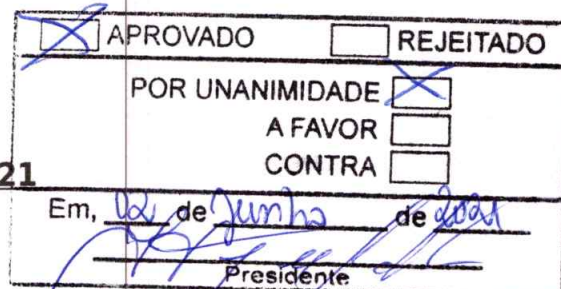 APROVADO REJEITADO
POR UNANIMIDADE
A FAVOR
CONTRA
21
Em, 02 de Junho de 2021
Presidente